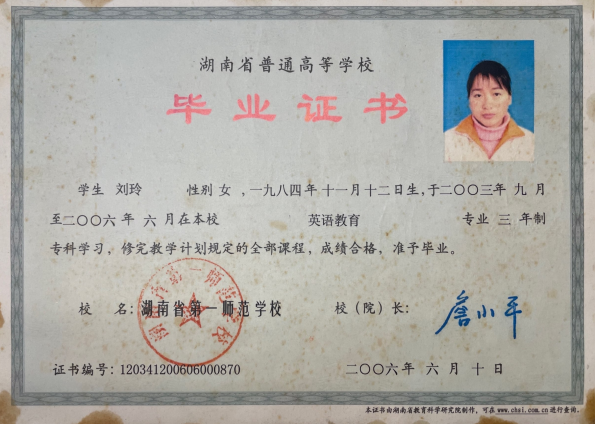 湖南省普通高等学校
毕业证书
学生 刘玲 性别 女 ,一九八四年十一月十二日生,于二〇〇三年 九 月
至二〇〇六年 六 月在本校 英语教育 专业 三 年制
专科学习,修完教学计划规定的全部课程,成绩合格,准予毕业。
校 名:湖南省第一师范学校 校(院)长:
湖南省第一师范学校
证书编号:120341200606000870 二〇〇六年 六 月 十 日
本证书由湖南省教育科学研究院制作,可在 www.chsi.com.cn进行查询。